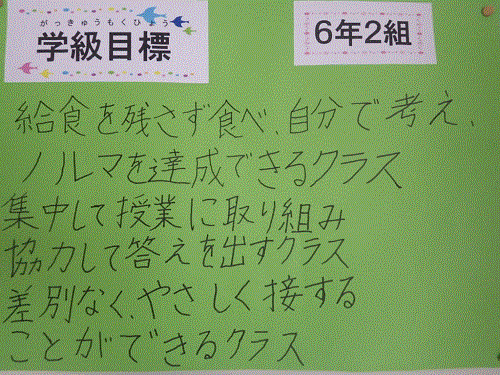 がっきゅうもくひょう
学級目標
6年2組
給食を残さず食べ、自分で考え、
ノルマを達成できるクラス
集中して授業に取り組み
協力して答えを出すクラス
差別なく、やさしく接する
ことができるクラス